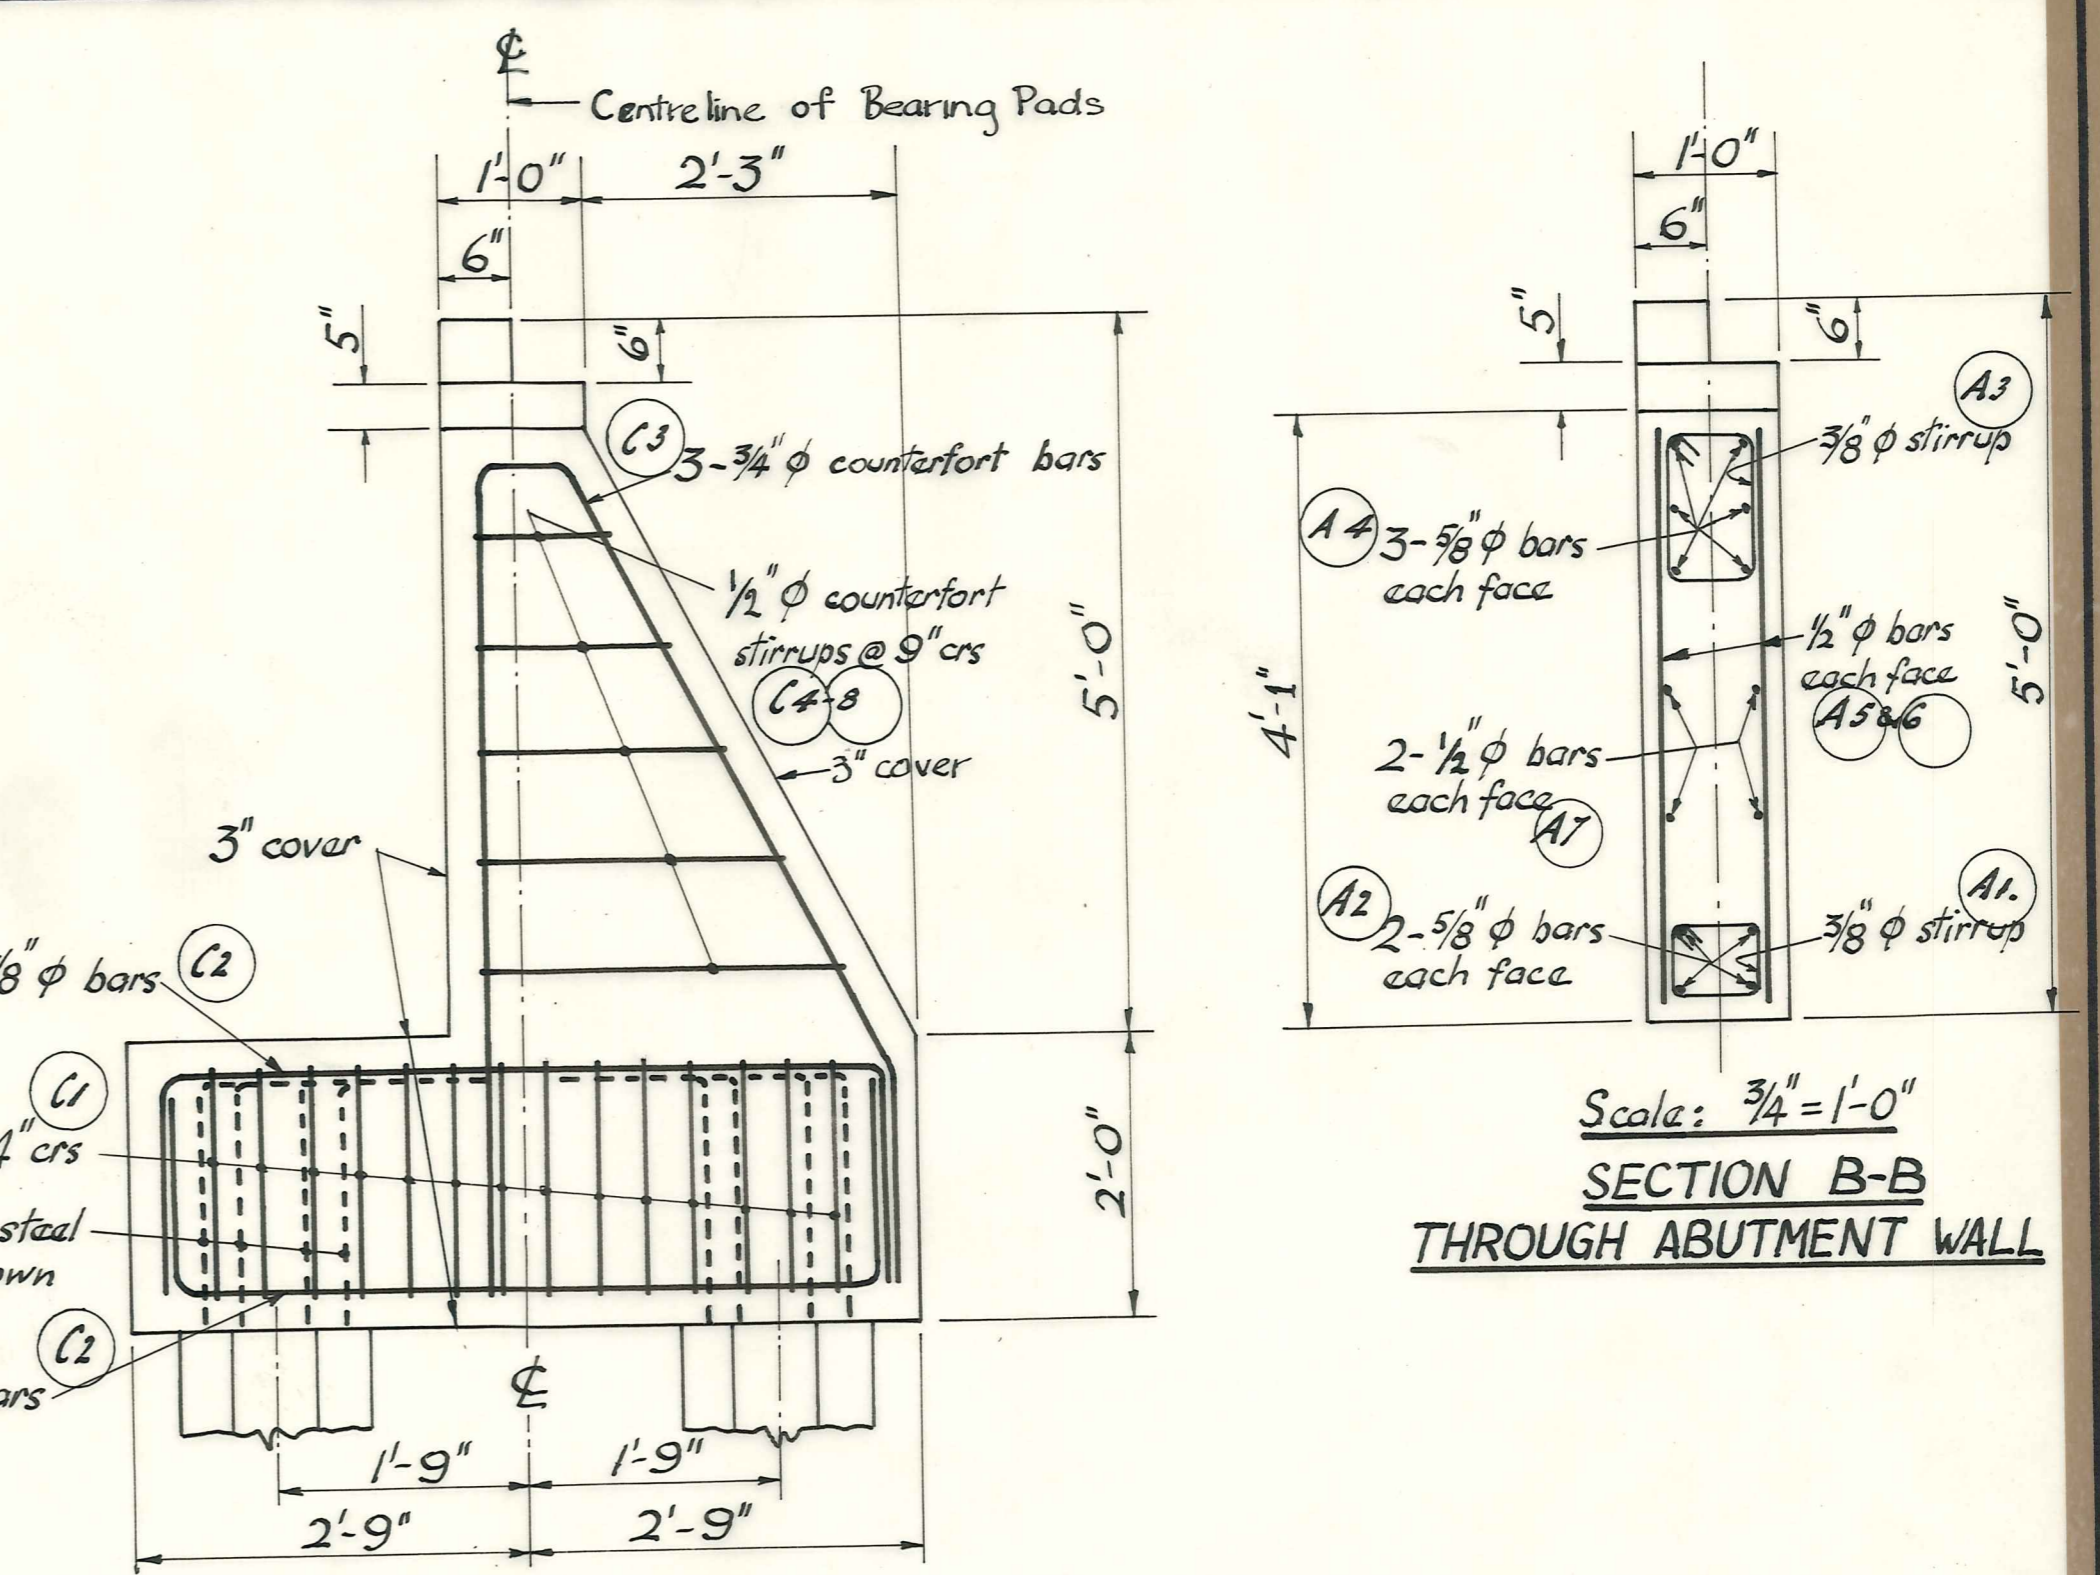 ℄
Centreline of Bearing Pads
1'-0"
2'-3"
6"
5"
6"
C3
3-3/4" φ counterfort bars
1/2" φ counterfort
stirrups @ 9" crs
C4-8
3" cover
5'-0"
3" cover
/8" φ bars
C2
C1
4" crs
steel
own
C2
ars
2'-0"
℄
1'-9"
1'-9"
2'-9"
2'-9"
1'-0"
6"
5"
6"
A3
3/8" φ stirrup
A4
3-5/8" φ bars
each face
1/2" φ bars
each face
A5&6
4'-1"
5'-0"
2-1/2" φ bars
each face
A7
A2
2-5/8" φ bars
each face
A1.
3/8" φ stirrup
Scale: 3/4" = 1'-0"
SECTION B-B
THROUGH ABUTMENT WALL